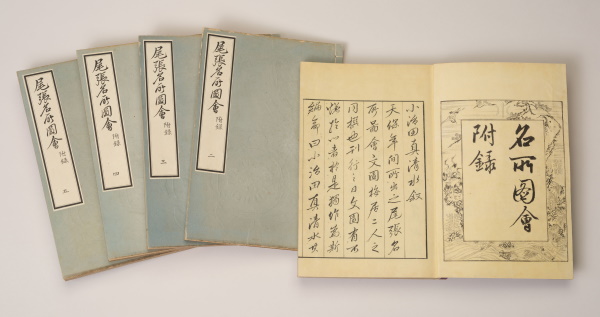 尾張名所圖會 附録 五
尾張名所圖會 附録 四
尾張名所圖會 附録 三
尾張名所圖會 附録 二
名所圖會
附録
小治田真清水叙
天保年間所出之尾張名
所啚會文園梅居二人之
同撰也刊行之日文園有不
慊於心者於是稿作為斯
編命曰小治田真清水其